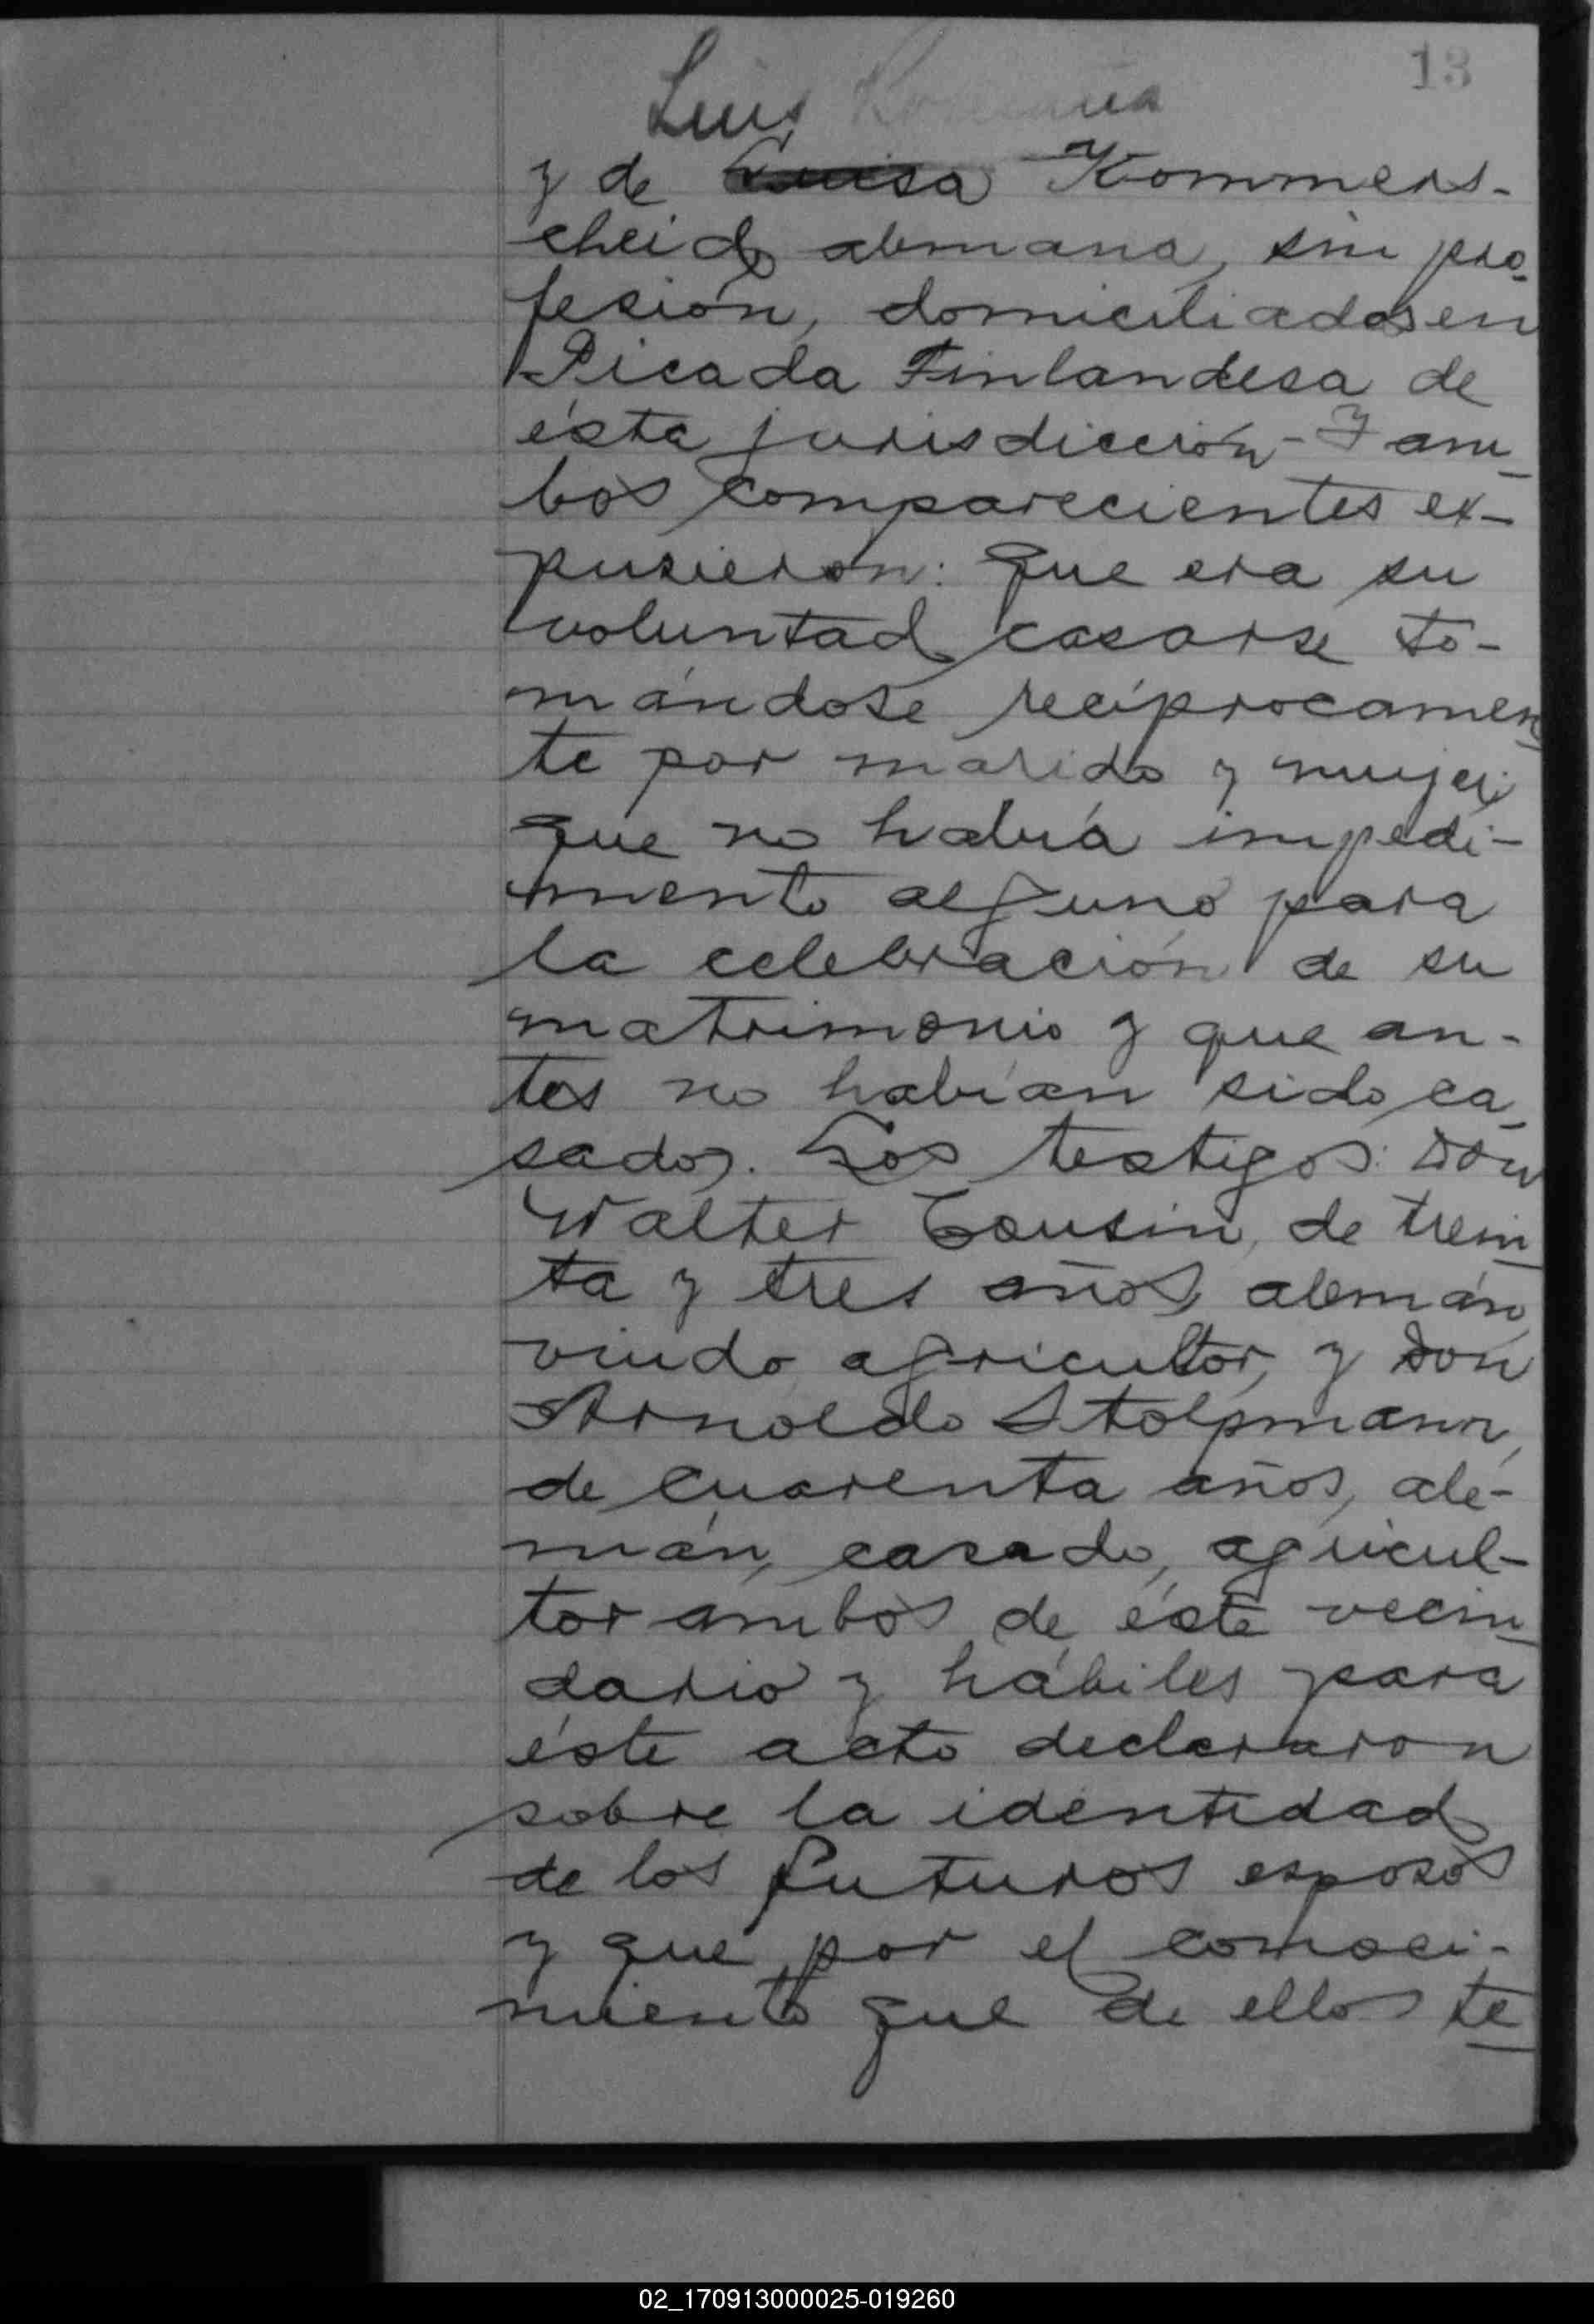 13
Luis
y de Luisa Kommers-
cheid, alemana, sin pro-
fesión, domiciliados en
Picada Finlandesa de
ésta jurisdicción - Y am-
bos comparecientes ex-
pusieron: que era su
voluntad casarse to-
mándose recíprocamen-
te por marido y mujer;
que no había impedi-
mento alguno para
la celebración de su
matrimonio y que an-
tes no habían sido ca-
sados. Los testigos: Don
Walter Cousin, de trein-
ta y tres años, alemán,
viudo, agricultor, y Don
Arnoldo Stolpmann,
de cuarenta años, ale-
mán, casado, agricul-
tor ambos de éste vecin-
dario y hábiles para
éste acto declararon
sobre la identidad
de los futuros esposos
y que por el conoci-
miento que de ellos te
02_170913000025-019260